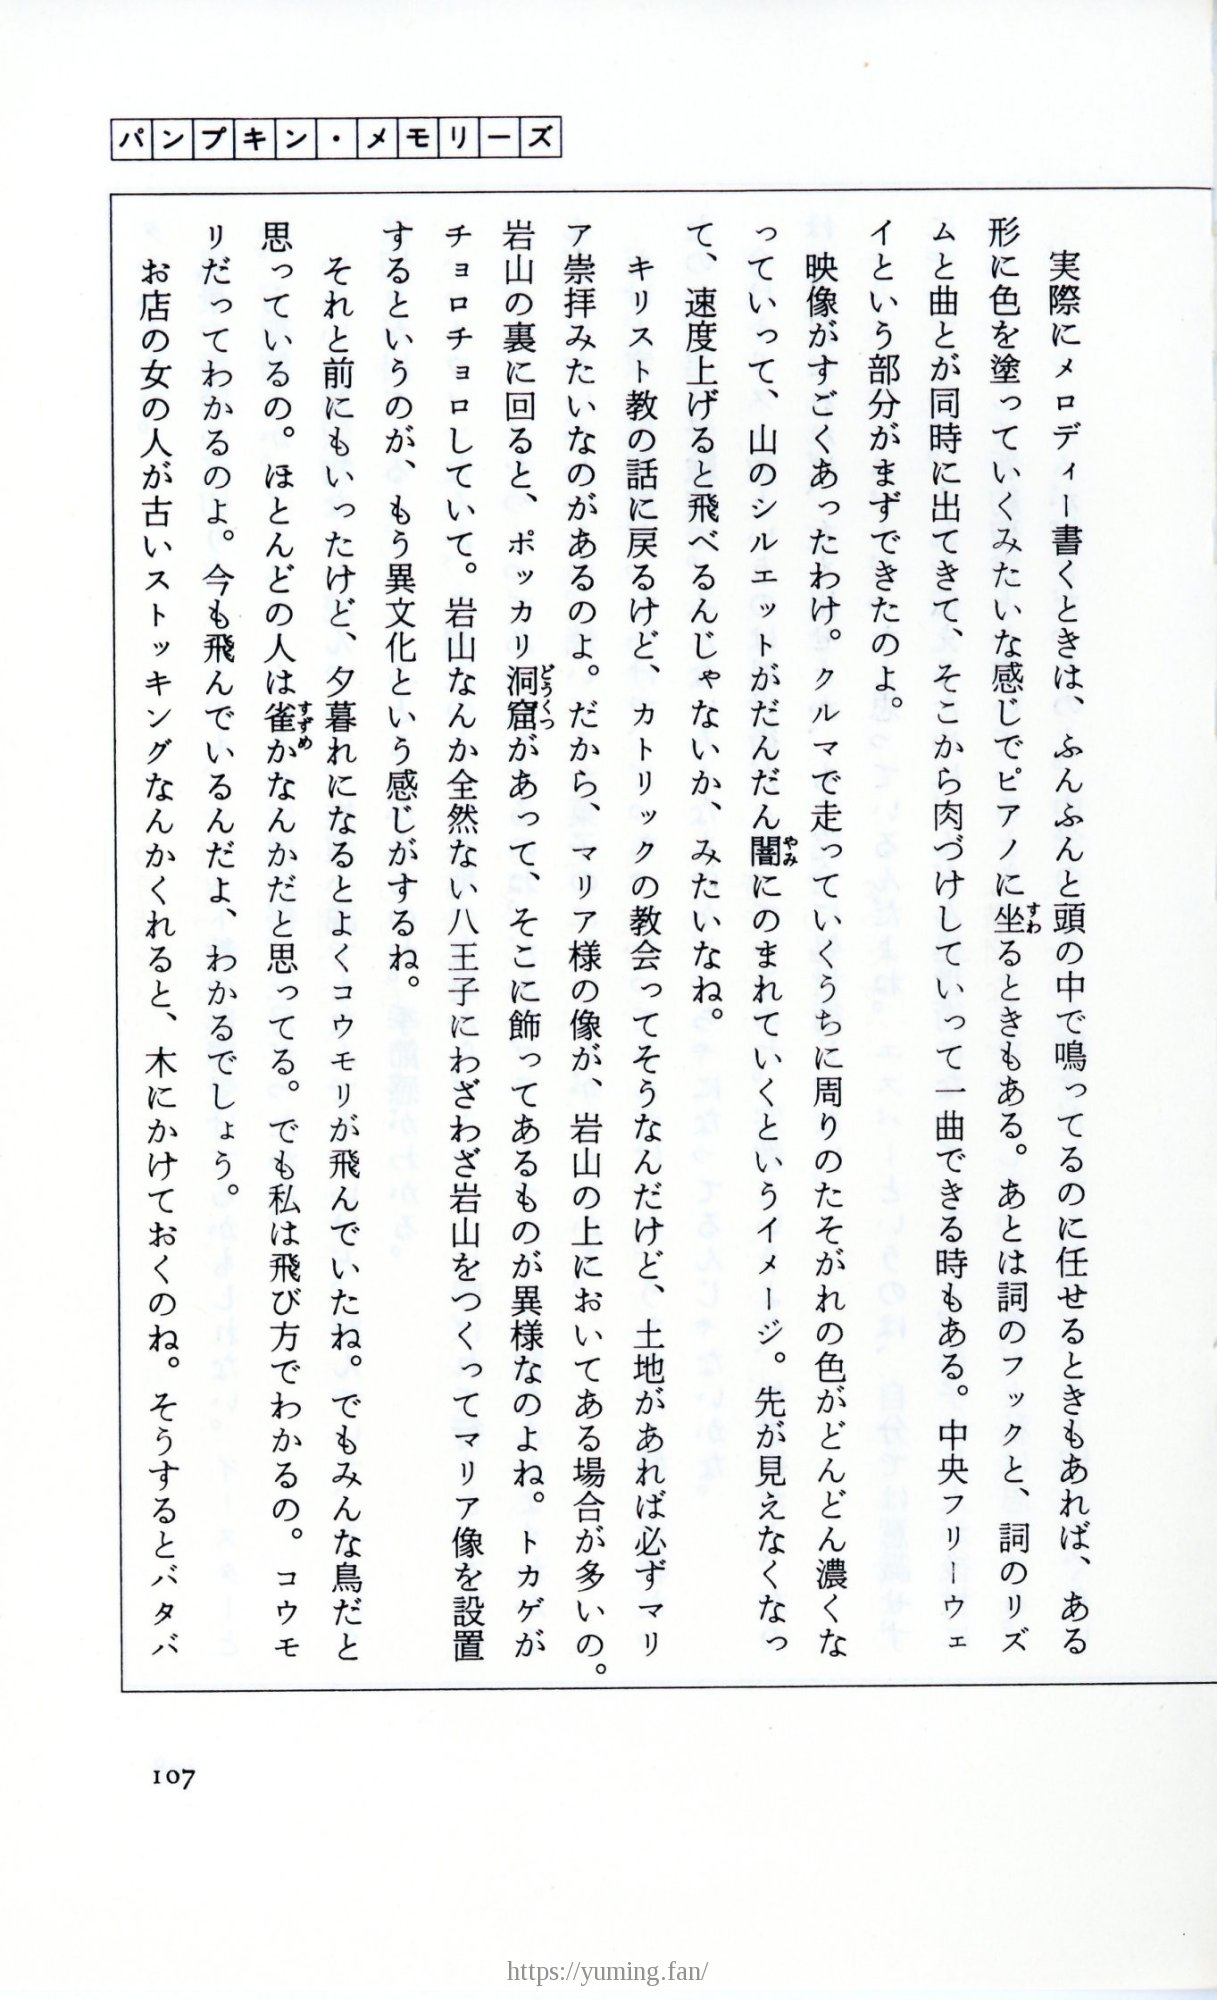 パンプキン・メモリーズ
実際にメロディー書くときは、ふんふんと頭の中で鳴ってるのに任せるときもあれば、ある
形に色を塗っていくみたいな感じでピアノに坐るときもある。あとは詞のフックと、詞のリズ
ムと曲とが同時に出てきて、そこから肉づけしていって一曲できる時もある。中央フリーウェ
イという部分がまずできたのよ。
映像がすごくあったわけ。クルマで走っていくうちに周りのたそがれの色がどんどん濃くな
っていって、山のシルエットがだんだん闇にのまれていくというイメージ。先が見えなくなっ
て、速度上げると飛べるんじゃないか、みたいなね。
キリスト教の話に戻るけど、カトリックの教会ってそうなんだけど、土地があれば必ずマリ
ア崇拝みたいなのがあるのよ。だから、マリア様の像が、岩山の上においてある場合が多いの。
岩山の裏に回ると、ポッカリ洞窟があって、そこに飾ってあるものが異様なのよね。トカゲが
チョロチョロしていて。岩山なんか全然ない八王子にわざわざ岩山をつくってマリア像を設置
するというのが、もう異文化という感じがするね。
それと前にもいったけど、夕暮れになるとよくコウモリが飛んでいたね。でもみんな鳥だと
思っているの。ほとんどの人は雀かなんかだと思ってる。でも私は飛び方でわかるの。コウモ
リだってわかるのよ。今も飛んでいるんだよ、わかるでしょう。
お店の女の人が古いストッキングなんかくれると、木にかけておくのね。そうするとバタバ
すわ
やみ
どうくつ
すずめ
107
https://yuming.fan/